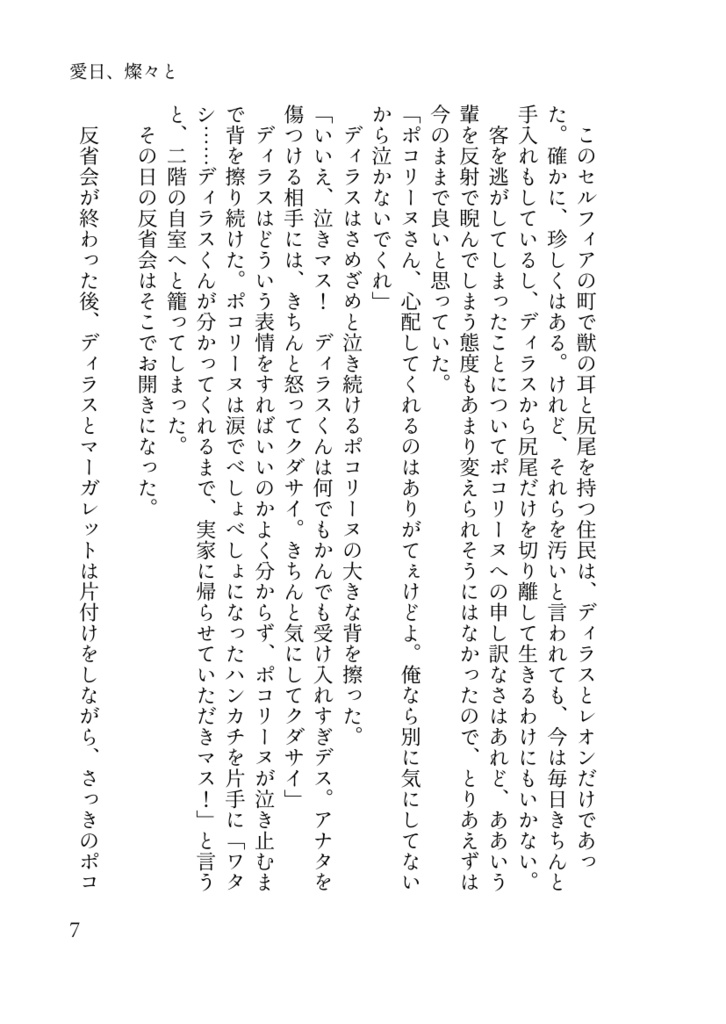 愛日、燦々と
　このセルフィアの町で獣の耳と尻尾を持つ住民は、ディラスとレオンだけであっ
た。確かに、珍しくはある。けれど、それらを汚いと言われても、今は毎日きちんと
手入れもしているし、ディラスから尻尾だけを切り離して生きるわけにもいかない。
　客を逃がしてしまったことについてポコリーヌへの申し訳なさはあれど、ああいう
輩を反射で睨んでしまう態度もあまり変えられそうにはなかったので、とりあえずは
今のままで良いと思っていた。
「ポコリーヌさん、心配してくれるのはありがてぇけどよ。俺なら別に気にしてない
から泣かないでくれ」
　ディラスはさめざめと泣き続けるポコリーヌの大きな背を擦った。
「いいえ、泣きマス！　ディラスくんは何でもかんでも受け入れすぎデス。アナタを
傷つける相手には、きちんと怒ってクダサイ。きちんと気にしてクダサイ」
　ディラスはどういう表情をすればいいのかよく分からず、ポコリーヌが泣き止むま
で背を擦り続けた。ポコリーヌは涙でべしょべしょになったハンカチを片手に「ワタ
シ……ディラスくんが分かってくれるまで、実家に帰らせていただきマス！」と言う
と、二階の自室へと籠ってしまった。
　その日の反省会はそこでお開きになった。
　反省会が終わった後、ディラスとマーガレットは片付けをしながら、さっきのポコ
7